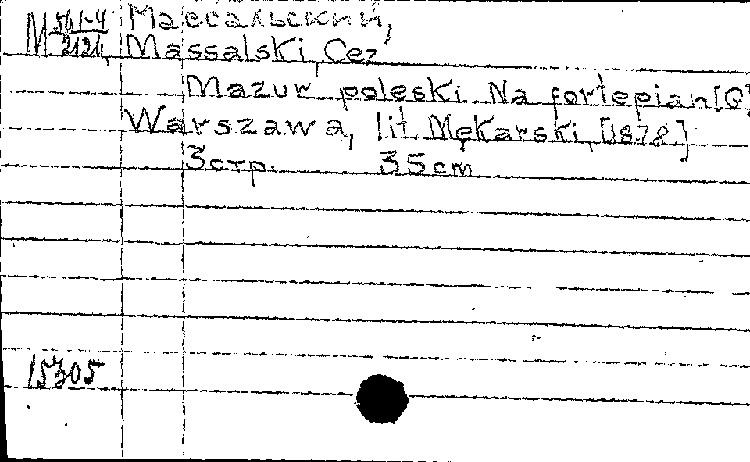 М 561-4 Массальский,
2121, Massalski, Cez
Mazur poleski. Na fortepian [G]
Warszawa, lit. Mękarski, [1878.]
3 стр. 35 cm
15305